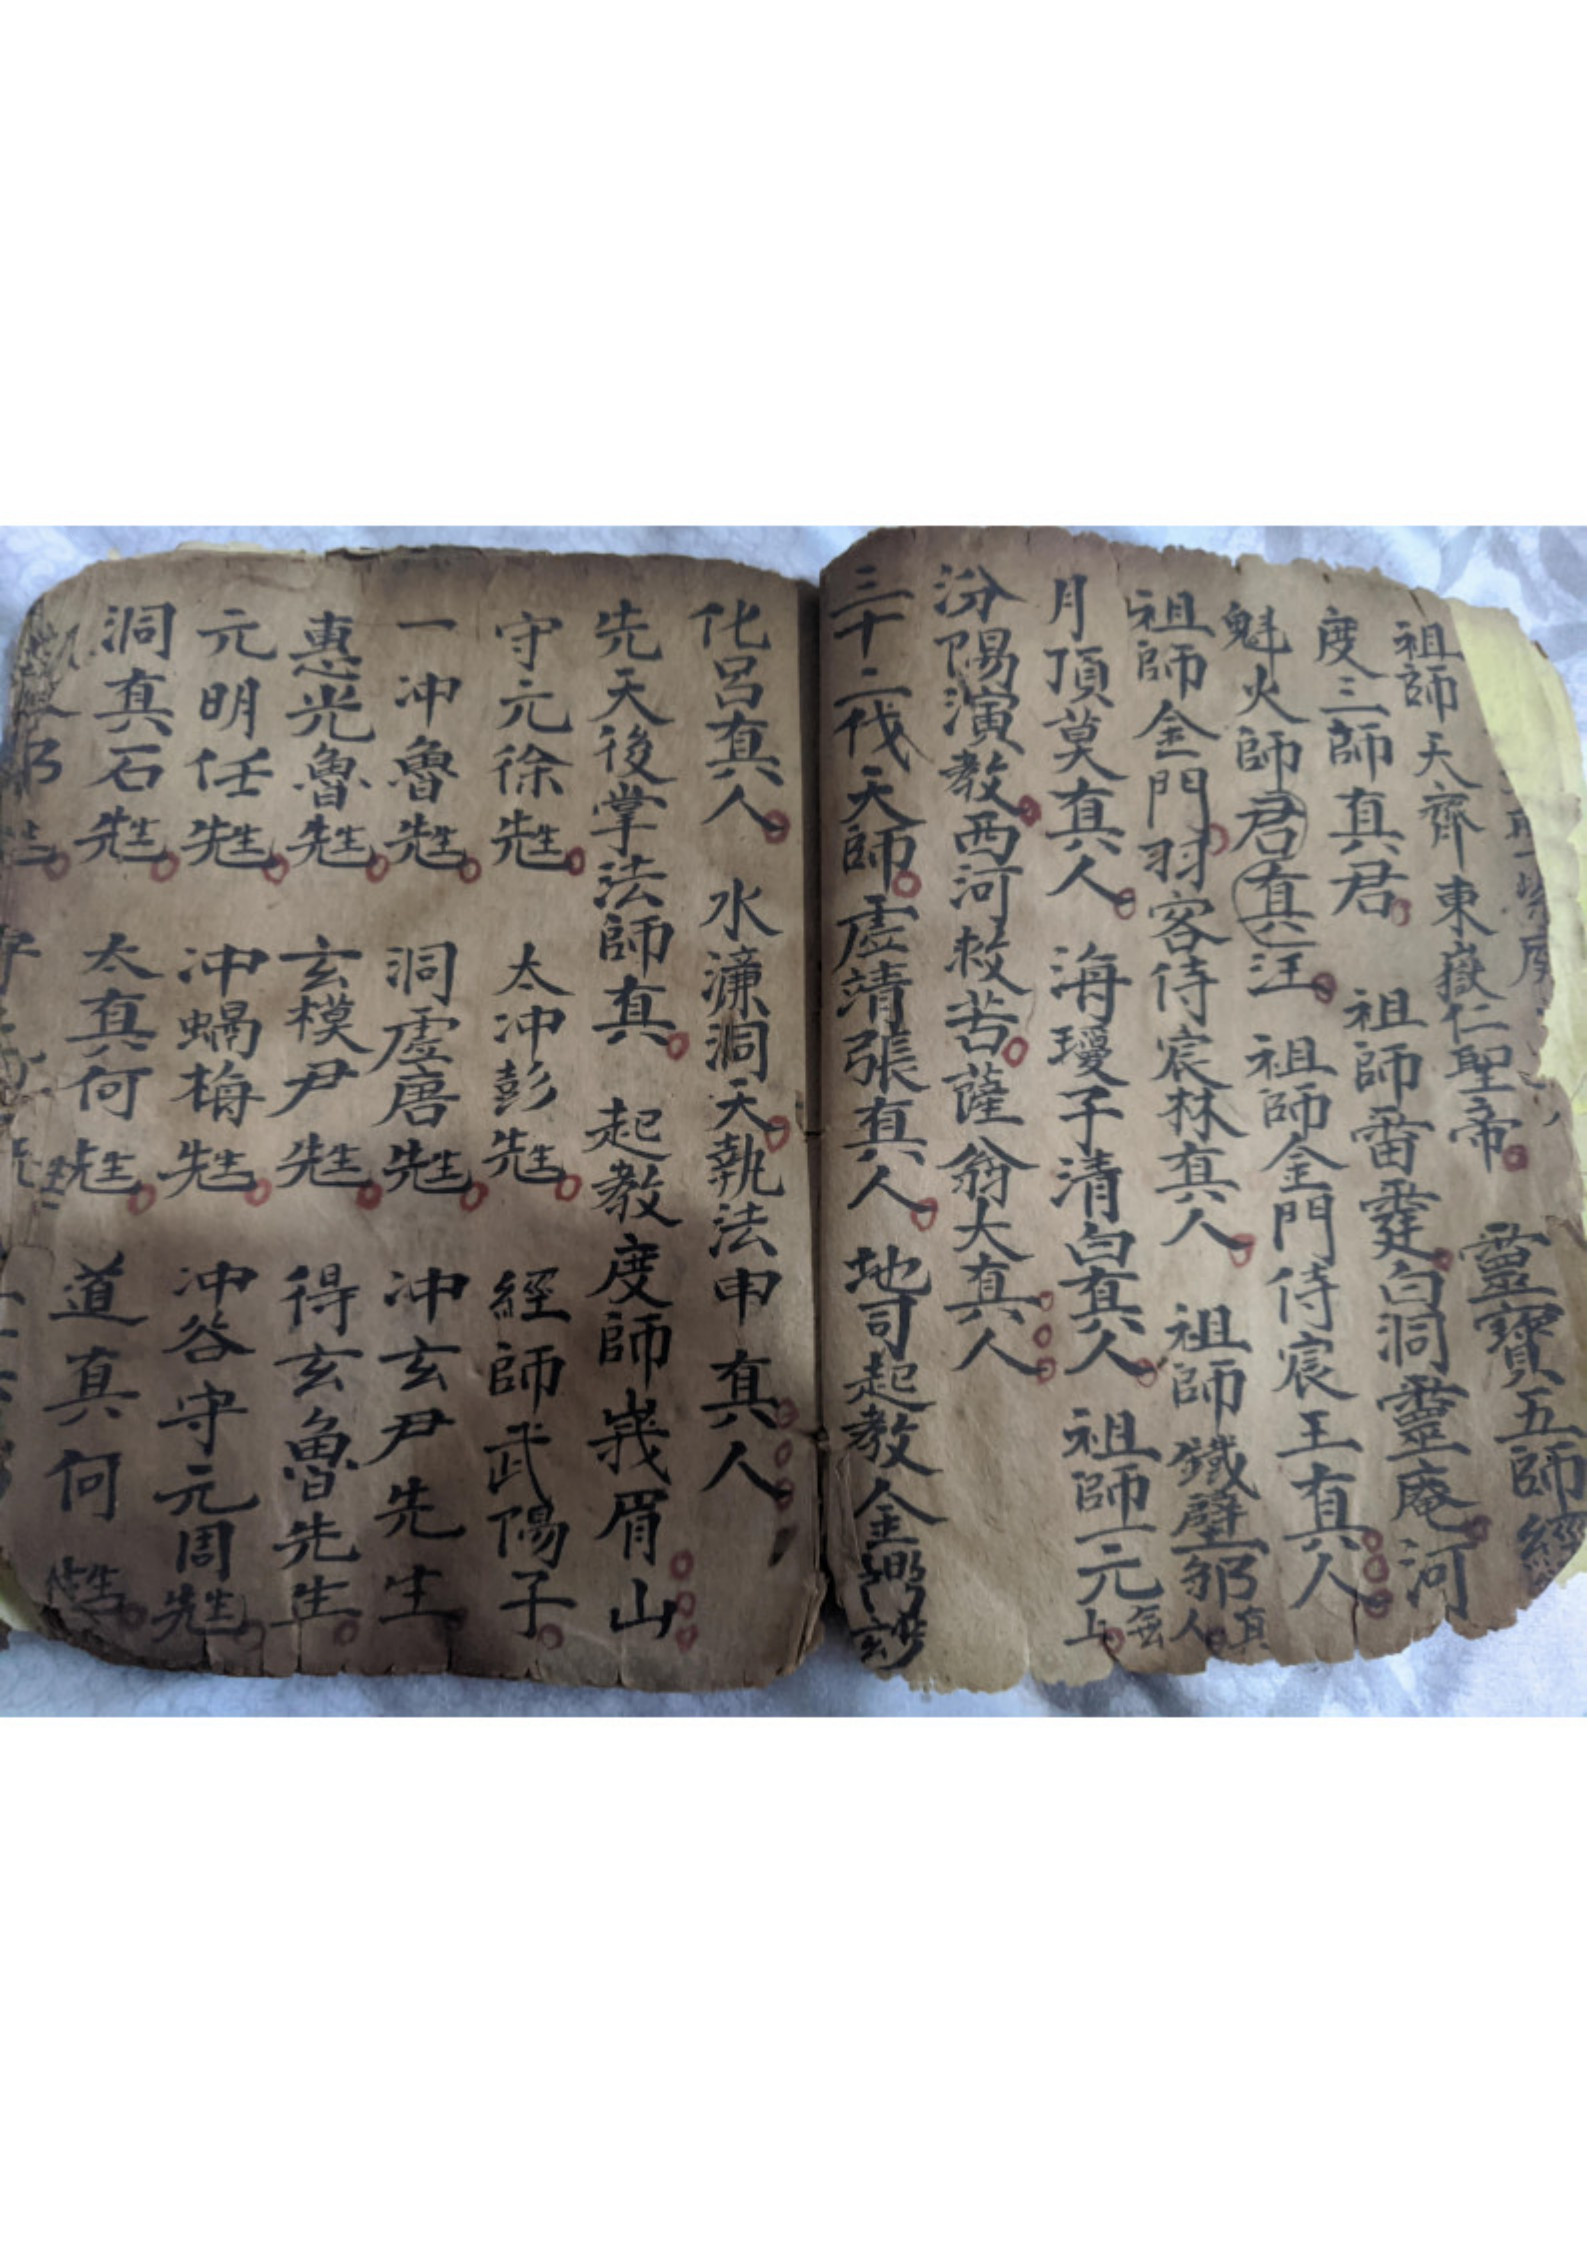 祖師天齊東嶽仁聖帝 靈寶五師經
度三師真君 祖師雷霆白洞靈庵河
魁火師君真汪 祖師金門侍宸王真人
祖師金門羽客侍宸林真人 祖師鐵壁鄒真人
月頂莫真人 海瓊子清白真人 祖師一元無上
汾陽演教西河救苦薩翁大真人
三十二代天師虛靖張真人 地司起教金鄸
化呂真人 水濂洞天執法申真人
先天後掌法師真 起教度師峩眉山
守元徐先生 太冲彭先生 經師武陽子
一冲魯先生 洞虛唐先生 冲玄尹先生
惠光魯先生 玄模尹先生 得玄魯先生
元明任先生 冲蝸梅先生 冲谷守元周先生
洞真石先生 太真何先生 道真何先生